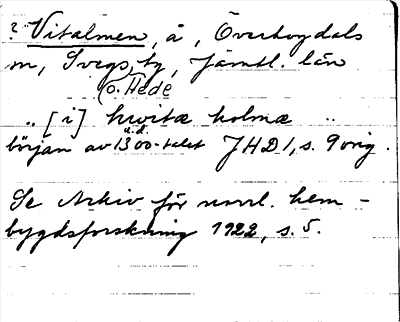 ? Vitalmen, å, Överhogdals
sn, Svegs tg, Jämtl. län
(o. Hede
.. [i] hwitæ holmæ ..
u.d.
början av 1300-talet JHD 1, s. 9 orig.
Se Arkiv för norrl. hem-
bygdsforskning 1922, s. 5.